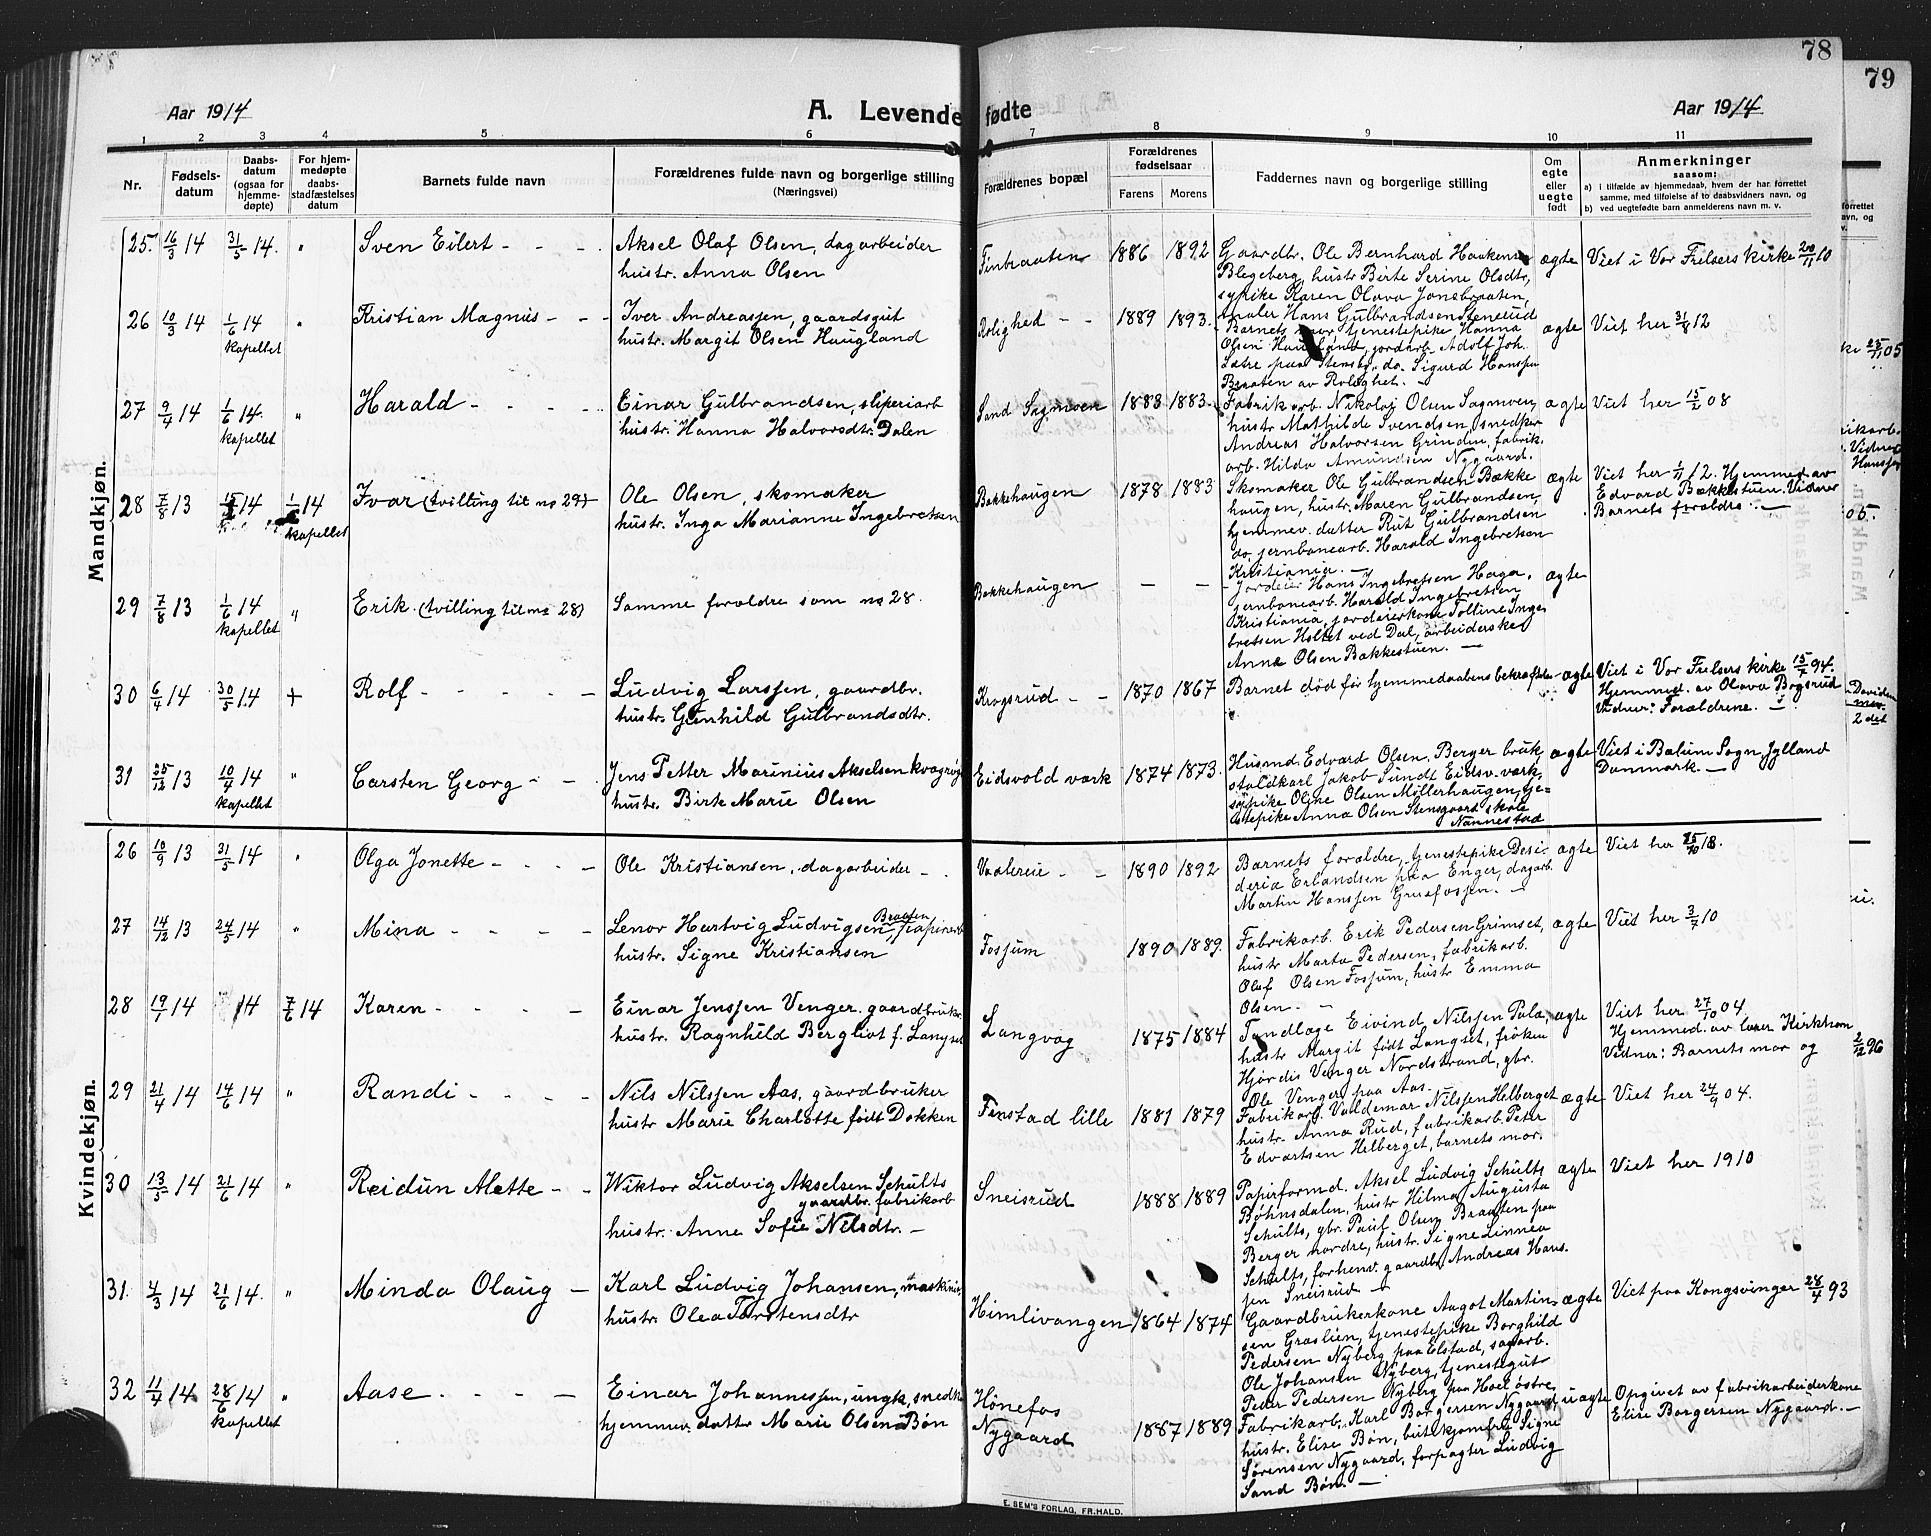 78
79
Aar 1914
A. Levende fødte
Aar 1914
1 2 3 4 5 6 7 8 9 10 11
Nr.
Fødsels-
datum
Daabs-
datum
(ogsaa for
hjemme-
døpte)
For hjem-
medøpte
daabs-
stadfæstelses
datum
Barnets fulde navn
Forældrenes fulde navn og borgerlige stilling
(Næringsvei)
Forældrenes bopæl
Forældrenes
fødselsaar
Farens Morens
Faddernes navn og borgerlige stilling
Om
egte
eller
uegte
født
Anmerkninger
saasom:
a) i tilfælde av hjemmedaab, hvem der har forrettet
samme, med tilføielse af to daabsvidners navn, og
b) ved uegtefødte barn anmelderens navn m. v.
Mandkjøn.
25. 16/3 14 31/5 14. " Sven Eilert - - -
Aksel Olaf Olsen, dagarbeider
hustr. Anna Olsen
Finbraaten 1886 1892
Gaardbr. Ole Bernhard Haakens
Blegeberg, hustr Birte Serine Olsdtr,
sypike Karen Olava Jonsbraaten,
maler Hans Gulbrandsen Stenerud
ægte Viet i Vor Frelsers kirke 20/11 10
26 10/3 14 1/6 14 kapellet " Kristian Magnus - - -
Iver Andreassen, gaardsgut
hustr. Margit Olsen Haugland
Rolighed - - 1889 1893.
Barnets mor, tjenestepike Hanna
Olsen Haugland, jordarb. Adolf Joh.
Sætre paa Stensby, do. Sigurd Hanssen
Braaten av Rolighet. -
ægte Viet her 31/8 12
27 9/4 14 1/6 14. kapellet " Harald - - - -
Einar Gulbrandsen, sliperiarb
hustr. Hanna Halvorsdtr. Dalen
Sand Sagmoen 1888 1883.
Fabrikarb. Nikolaj Olsen Sagmoen,
hustr Mathilde Svendsen, snedker
Andreas Halvorsen Grinden, fabrik.
arb. Hilda Amundsen Nygaard.
ægte Viet her 15/2 08
28 7/8 13 14 1/ 14 kapellet Ivar (tvilling til no 29)
Ole Olsen, skomaker
hustr. Inga Marianne Ingebretsen
Bakkehaugen 1878 1883
Skomaker Ole Gulbrandsen Bække
haugen, hustr. Maren Gulbrandsen,
hjemmev. datter Rut Gulbrandsen
do, jernbanearb. Harald Ingebretsen
Kristiania. -
ægte Viet her 1/11 12. Hjemmed. av
Edvard Bækkestuen. Vidner
Barnets forældre. -
29 7/8 13 1/6 14 kapellet " Erik. (tvilling til no 28)
Samme forældre som no 28.
Bakkehaugen - -
Jordeier Hans Ingebretsen Haga,
jernbanearb. Harald Ingebretsen
Kristiania, jordeierkone Tolline Inge
bretsen Holtet ved Dal, arbeiderske
Anna Olsen Bakkestuen. -
ægte
30 6/4 14 30/5 14 + Rolf - - - - -
Ludvig Larssen, gaardbr.
hustr. Gunhild Gulbrandsdtr.
Krogsrud - - 1870 1867
Barnet død før hjemmedaabens bekræftelse
ægte Viet i Vor Frelsers kirke 15/7 94.
Hjemmed. av Olava Bogsrud
Vidner: Forældrene. -
31 25/12 13 10/4 14 kapellet " Carsten Georg - -
Jens Petter Marinius Akselsen kvægrøg
hustr. Birte Marie Olsen
Eidsvold værk 1874 1873.
Husmd. Edvard Olsen, Berger bruk
staldkarl Jakob Sundt Eidsv. værk,
sypike Oline Olsen Møllerhaugen, tje=
stepike Anna Olsen Stensgaard skole
Nannestad
ægte Viet i Bælum Sogn, Jylland
Danmark. -
Kvindekjøn.
26 10/9 13 31/5 14 " Olga Jonette - - - -
Ole Kristiansen, dagarbeider - -
Vaalereie - - 1890 1892
Barnets forældre, tjenestepike Desi-
deria Erlandsen paa Enger, dagarb.
Martin Hanssen Gruefossen. -
ægte Viet her 25/10 13.
27 14/12 13 24/5 14 " Mina - - - -
Lenor Hartvig Ludvigsen Braaten, papirarb
hustr. Signe Kristiansen
Fossum 1890 1889.
Fabrikarb. Erik Pedersen Grimset,
hustr Marta Pedersen, fabrikarb.
Olaf Olsen Fossum, hustr Emma
Olsen. -
ægte Viet her 3/7 10
28 19/1 14 14 7/6 14 Karen - - - -
Einar Jenssen Venger. gaardbruk.
hustr. Ragnhild Bergliot f. Langset
Langvag 1875 1884
Tandlæge Eivind Nilssen Tala,
hustr Margit født Langset, frøken
Hjørdis Venger Nordstrand, gbr.
Ole Venger paa Aas. -
ægte Viet her 27/10 04.
Hjemmed. av lærer Kirkhom
Vidner: Barnets mor og
29 21/4 14 14/6 14 " Randi - - - -
Nils Nilssen Aas, gaardbruker
hustr Marie Charlotte født Dokken
Finstad lille 1881 1879
Fabrikarb. Valdemar Nilssen Helberget
hustr. Anna Rud, fabrikarb. Peter
Edvartsen Helberget, barnets mor.
ægte Viet her 24/9 04.
30 13/5 14 21/6 14 " Reidun Alette - -
Wiktor Ludvig Akselsen Schults
gaardbr. fabrikarb
hustr. Anne Sofie Nilsdtr. -
Sneisrud 1888 1889
Papirformd. Aksel Ludvig Schults
Bøhnsdalen, hustr Hilma Augusta
Schults, gbr. Paul Olsen Braaten paa
Berger nordre, hustr. Signe Linnea
Schults, forhenv. gaardbr. Andreas Hans.
sen Sneisrud -
ægte Viet her 1910
31. 4/3 14 21/6 14. " Minda Olaug -
Karl Ludvig Johansen, maskinist
hustr. Olea Torstensdtr
Himlivangen 1864 1874
Gaardbrukerkone Aagot Martin-
sen Graslien, tjenestepike Borghild
Pedersen Nyberg paa Elstad, sagarb.
Ole Johansen Nyberg, tjenestegut
Peder Pedersen Nyberg paa Hoel østre
ægte Viet paa Kongsvinger 28/4 93
32 11/4 14 28/6 14 kapellet " Aase - - - -
Einar Johannessen, ungk. snedk
hjemmev. datter Marie Olsen Bøn
Hønefos
Nygaard 1887 1889
Fabrikarb. Karl Borgersen Nygaard,
hustr. Elise Bøn, butikjomfru Signe
Sørensen Nygaard, forpagter Ludvig
Sand Bøn. -
uægte Opgivet av fabrikarbeiderkone
Elise Borgersen Nygaard. -
E. SEM'S FORLAG, FR.HALD.